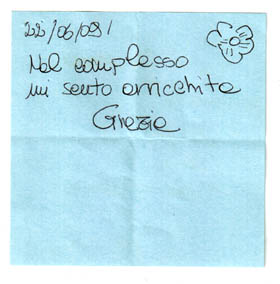 22/06/09
Nel complesso
mi sento arricchita
Grazie